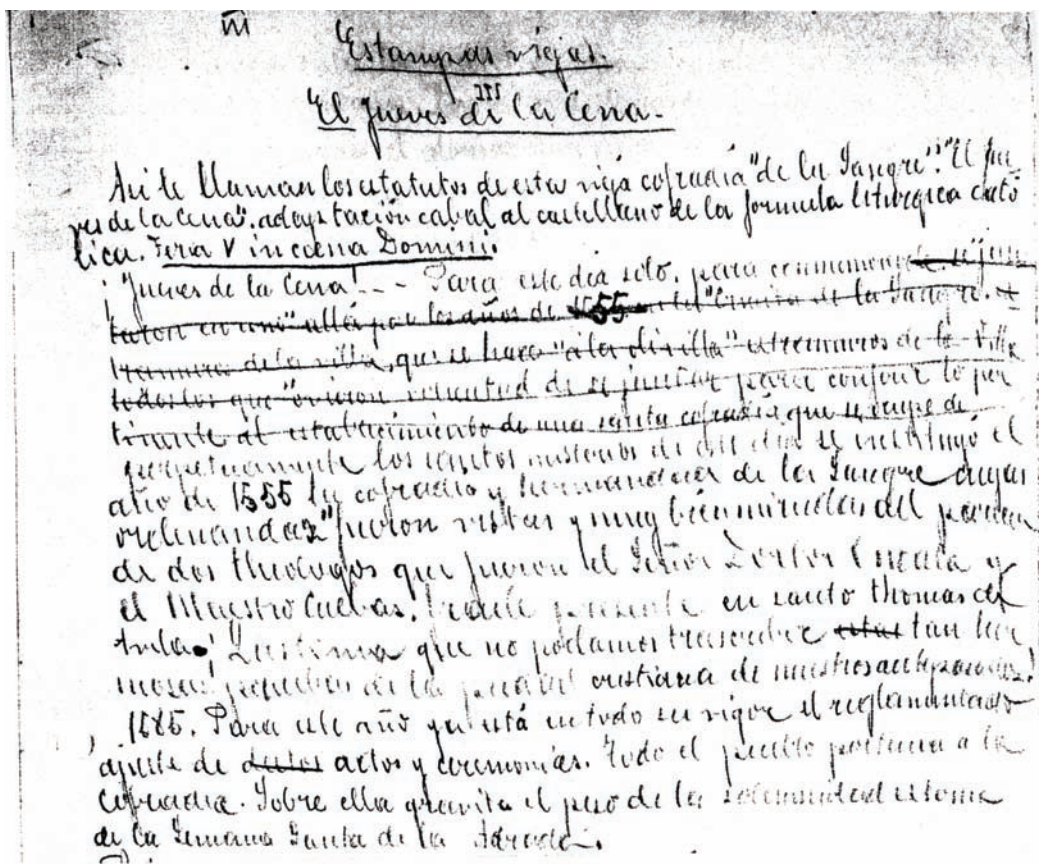 III
Estampas viejas.
III
El Jueves de la Cena.
Asi le llaman los estatutos de esta vieja cofradia "de la Sangre". "El Jue
ves de la Cena". adaptación cabal al castellano de la formula liturgica cató
lica. Feria V in coena Domini.
¡"Jueves de la Cena! - - Para este dia solo, para conmemorar se jun
taron en uno" allá por los años de 1555 en la "Ermita de la Sangre.
de la villa, que se hace "a la olivilla" extramuros de la villa
todos los que "ovieron voluntad de se juntar para conferir lo per
tinente al establecimiento de una santa cofradía que se ocupe de
perpetuamente los santos misterios de dia se instituyó el
año de 1555 la cofradia y hermandad de la Sangre cuyas
ordenanzas "fueron vistas y muy bien miradas del parecer
de dos theologos que fueron el Señor Dortor y
el Maestro Cuebas, presente en santo thomas de
Avila. ¡Lastima que no podamos trascribir estas tan her
mosas de la piedad cristiana de nuestros antepasados!
1585. Para este año ya está en todo su vigor el reglamentado
ajuste de actos y ceremonias. Todo el pueblo pertenece a la
cofradia. Sobre ella gravita el peso de la solemnidad externa
de la Semana Santa de la Adrada.